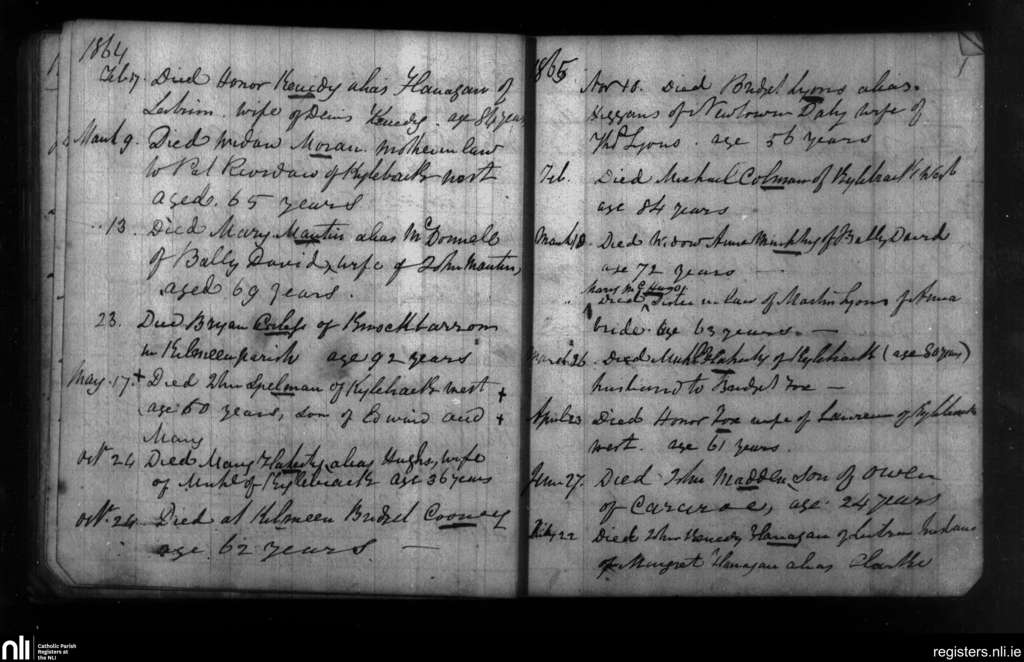 1864
Feb 17. Died Honor Kenedy alias Flanagan of
wife of Denis Kenedy. age 84 years
March 9. Died Widow Moran mother in law
to Pat Riordan of Kylebrack west
aged 65 years
13 Died Mary Mantin alias McDonnell
of Bally David, wife of John Mantin,
aged 69 years.
23. Died Bryan of Knockbarron
in Kilmeen parish age 92 years
May. 17. + Died John Spelman of Kylebrack west +
age 50 years, son of Edwind and +
Mary
Oct. 24 Died Mary Flaherty alias Hughs, wife
of Michl of Kylebrack age 36 years
Oct. 24. Died at Kilmeen Bridget Cooney
age 62 years —
1865
Nov 18. Died Bridget Lyons alias
Higgans of Newtown Daly wife of
Thos Lyons. age 56 years
Feb. Died Michael Colman of Kylebrack West
age 84 years
March 18. Died Widow Anna Murphy of Bally David
age 72 years
Mary Mc
Died Sister in law of Martin Lyons of Anna
bride. age 63 years. —
March 26. Died Michl Flaherty of Kylebrack (age 80 years)
husband to Bridget Fox —
April 23 Died Honor Fox wife of Lawrence of Kylebrack
west. age 61 years.
June 27. Died John Madden, Son of Owen
of Cararoe, age 24 years
22 Died John Kenedy Flanagan of
of Margret Flanagan alias Clarke
nli
Catholic Parish
Registers at
the NLI
registers.nli.ie